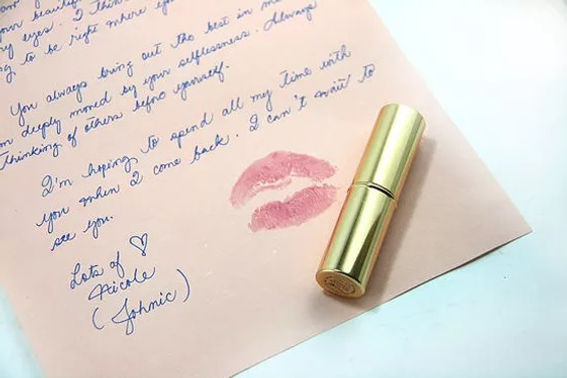 your beautiful
ry eyes. I think
g to be right where yo
You always bring out the best in me
m deeply moved by your selflessness. Always
thinking of others before yourself.
I'm hoping to spend all my time with
you when I come back. I can't wait to
see you.
Lots of ♡
Nicole
(Johnic)